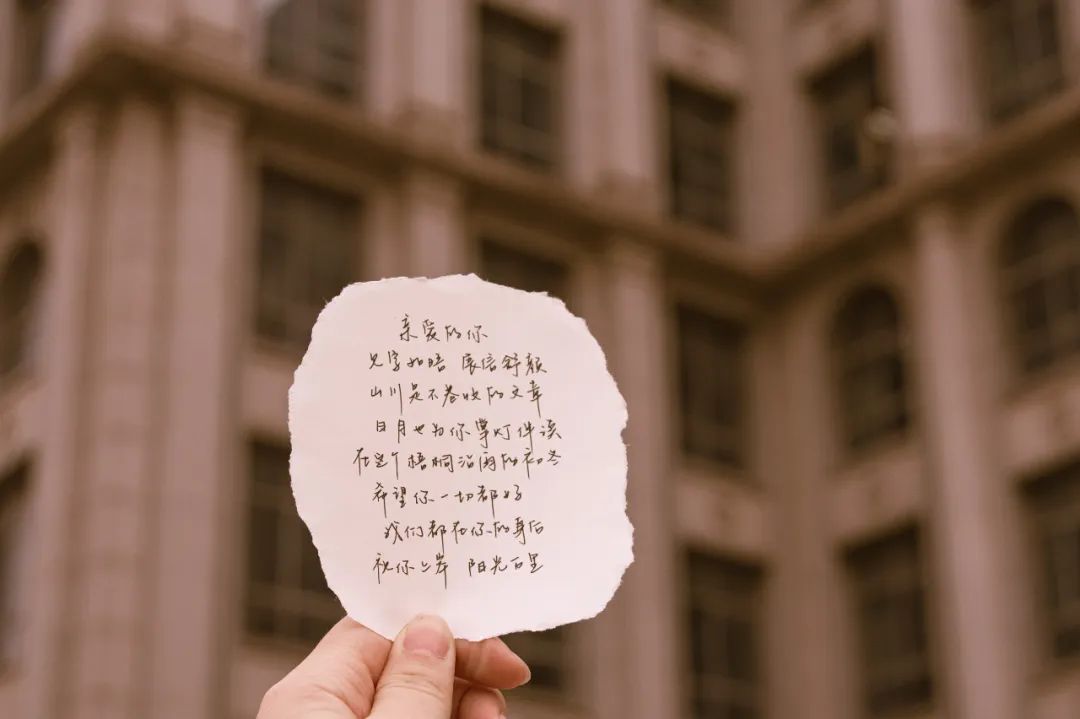 亲爱的你
见字如晤 展信舒颜
山川是不卷收的文章
日月也为你掌灯伴读
在这个梧桐沾雨的初冬
希望你一切都好
我们都在你的身后
祝你上岸 阳光百里